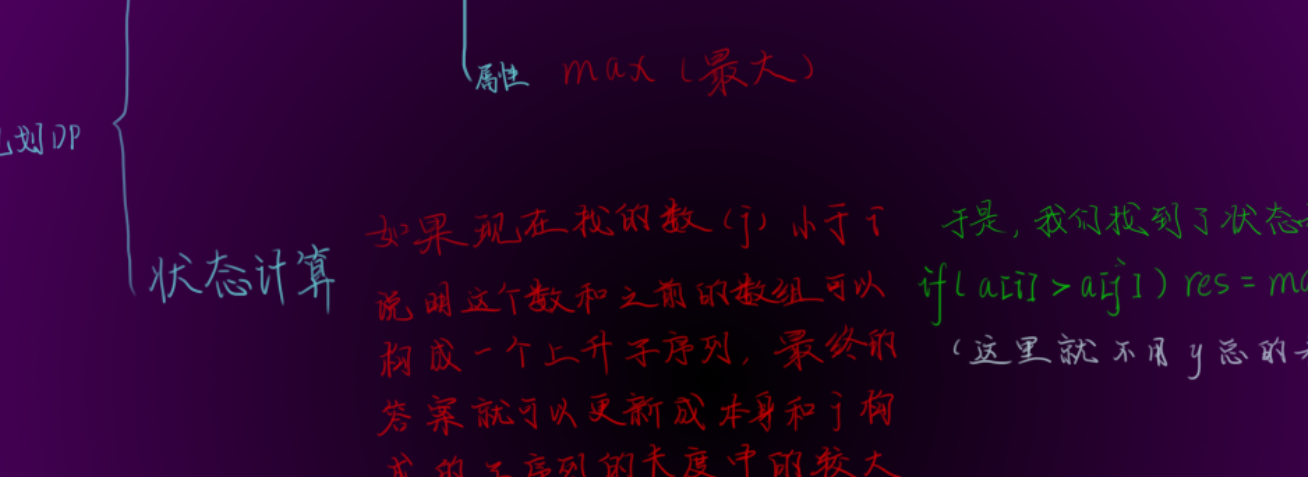 属性 max (最大)
划DP
状态计算
如果现在找的数(j)小于i
说明这个数和之前的数组可以
构成一个上升子序列, 最终的
答案就可以更新成本身和j构
成的子序列的长度中的较大
于是, 我们找到了状态
if(a[i]>a[j])res=ma
(这里就不用y总的